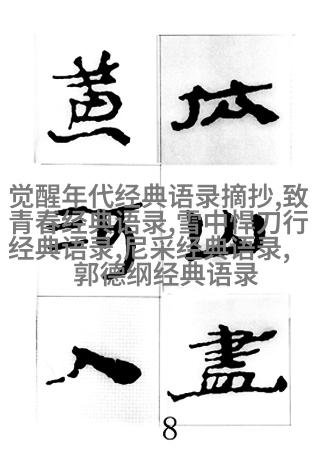 依山盡
黄河入
觉醒年代经典语录摘抄,致
青春经典语录,雪中悍刀行
经典语录,尼采经典语录,
郭德纲经典语录
8